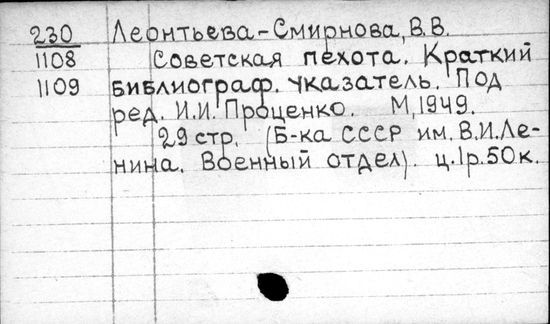 230 Леонтьева-Смирнова, В.В.
1108 Советская пехота. Краткий
1109 библиограф. указатель. Под
ред. И.И. Проценко. М, 1949.
29 стр. (Б-ка СССР им. В.И.Ле-
нина. Военный отдел). ц.1р.50к.